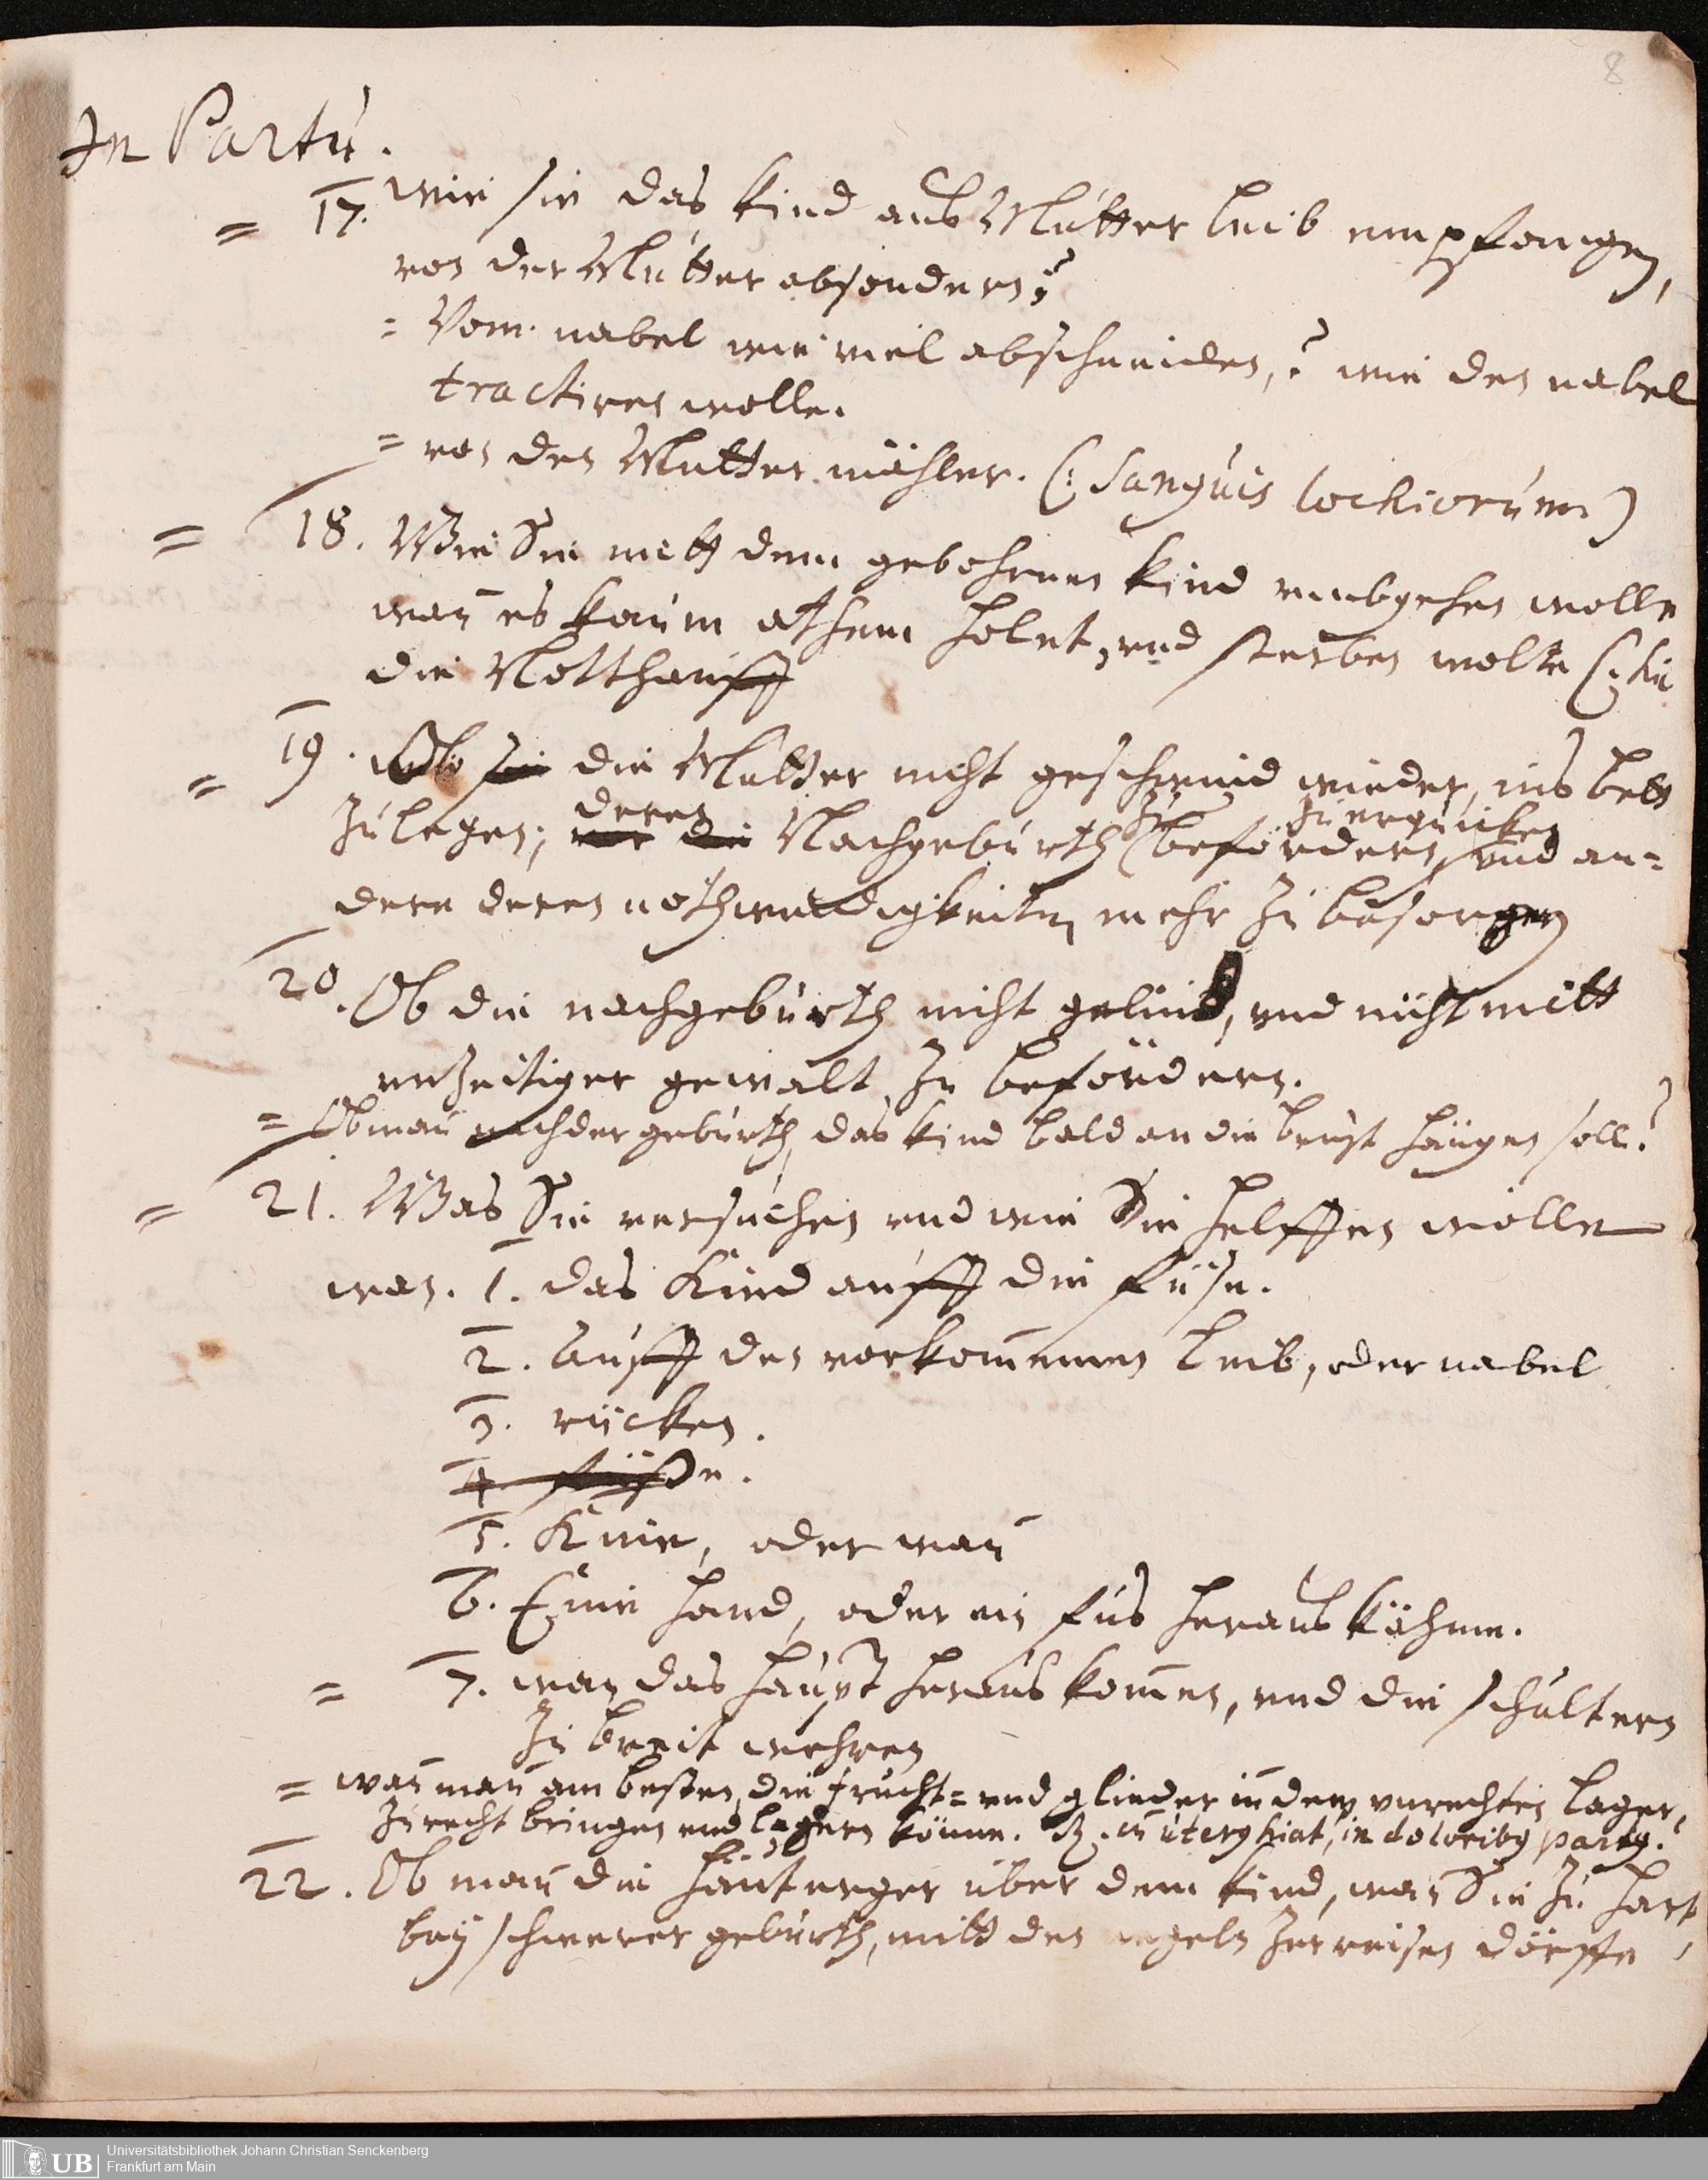 8
In Partu.
= 17. wie sie das kind aus Mutter leib empfangen,
von der Mutter absondern?
= Vom nabel wie viel abschneiden,? wie den nabel
tractiren wolle.
= von den Mutter mähler. (: sanguis lochiorum)
= 18. Wie Sie mitt dem gebohrnen kind umbgehen wolle
wan̄ es kaum athem holet, und sterben wolte (:
die Notthauff
= 19. Ob sie die Mutter nicht geschwind wieder, ins bett
zu legen; vor die deren Nachgeburth zu befördern, zu erquicken und an=
dere deren nothwendigkeiten mehr zu besorgen
20. Ob die nachgeburth nicht gelind, und nicht mitt
unzeitiger gewalt zu befördern.
= Ob man nach der geburth, das kind bald an die brust hängen soll?
= 21. Was Sie versuchen und wie Sie helffen wolle
wan. 1. das Kind auff die füse.
2. Auff den vorkom̄enen Leib, oder nabel
3. rücken.
4. füße.
5. Knie, oder wan̄
6. Eine hand, oder ein fus heraus kähme.
= 7. wan das haupt heraus kom̄en, und die schultern
zu breit wehren
= wan̄ man am besten, die frucht= und glieder in dem unrechten Lager,
zurecht bringen und lagern könne. cū uterus hiat, in doloribus partus.
22. Ob man die häut über dem kind, wan Sie zu hart
bey schwerer geburth, mitt den nägeln zerreisen dörffe,
UB Universitätsbibliothek Johann Christian Senckenberg
Frankfurt am Main